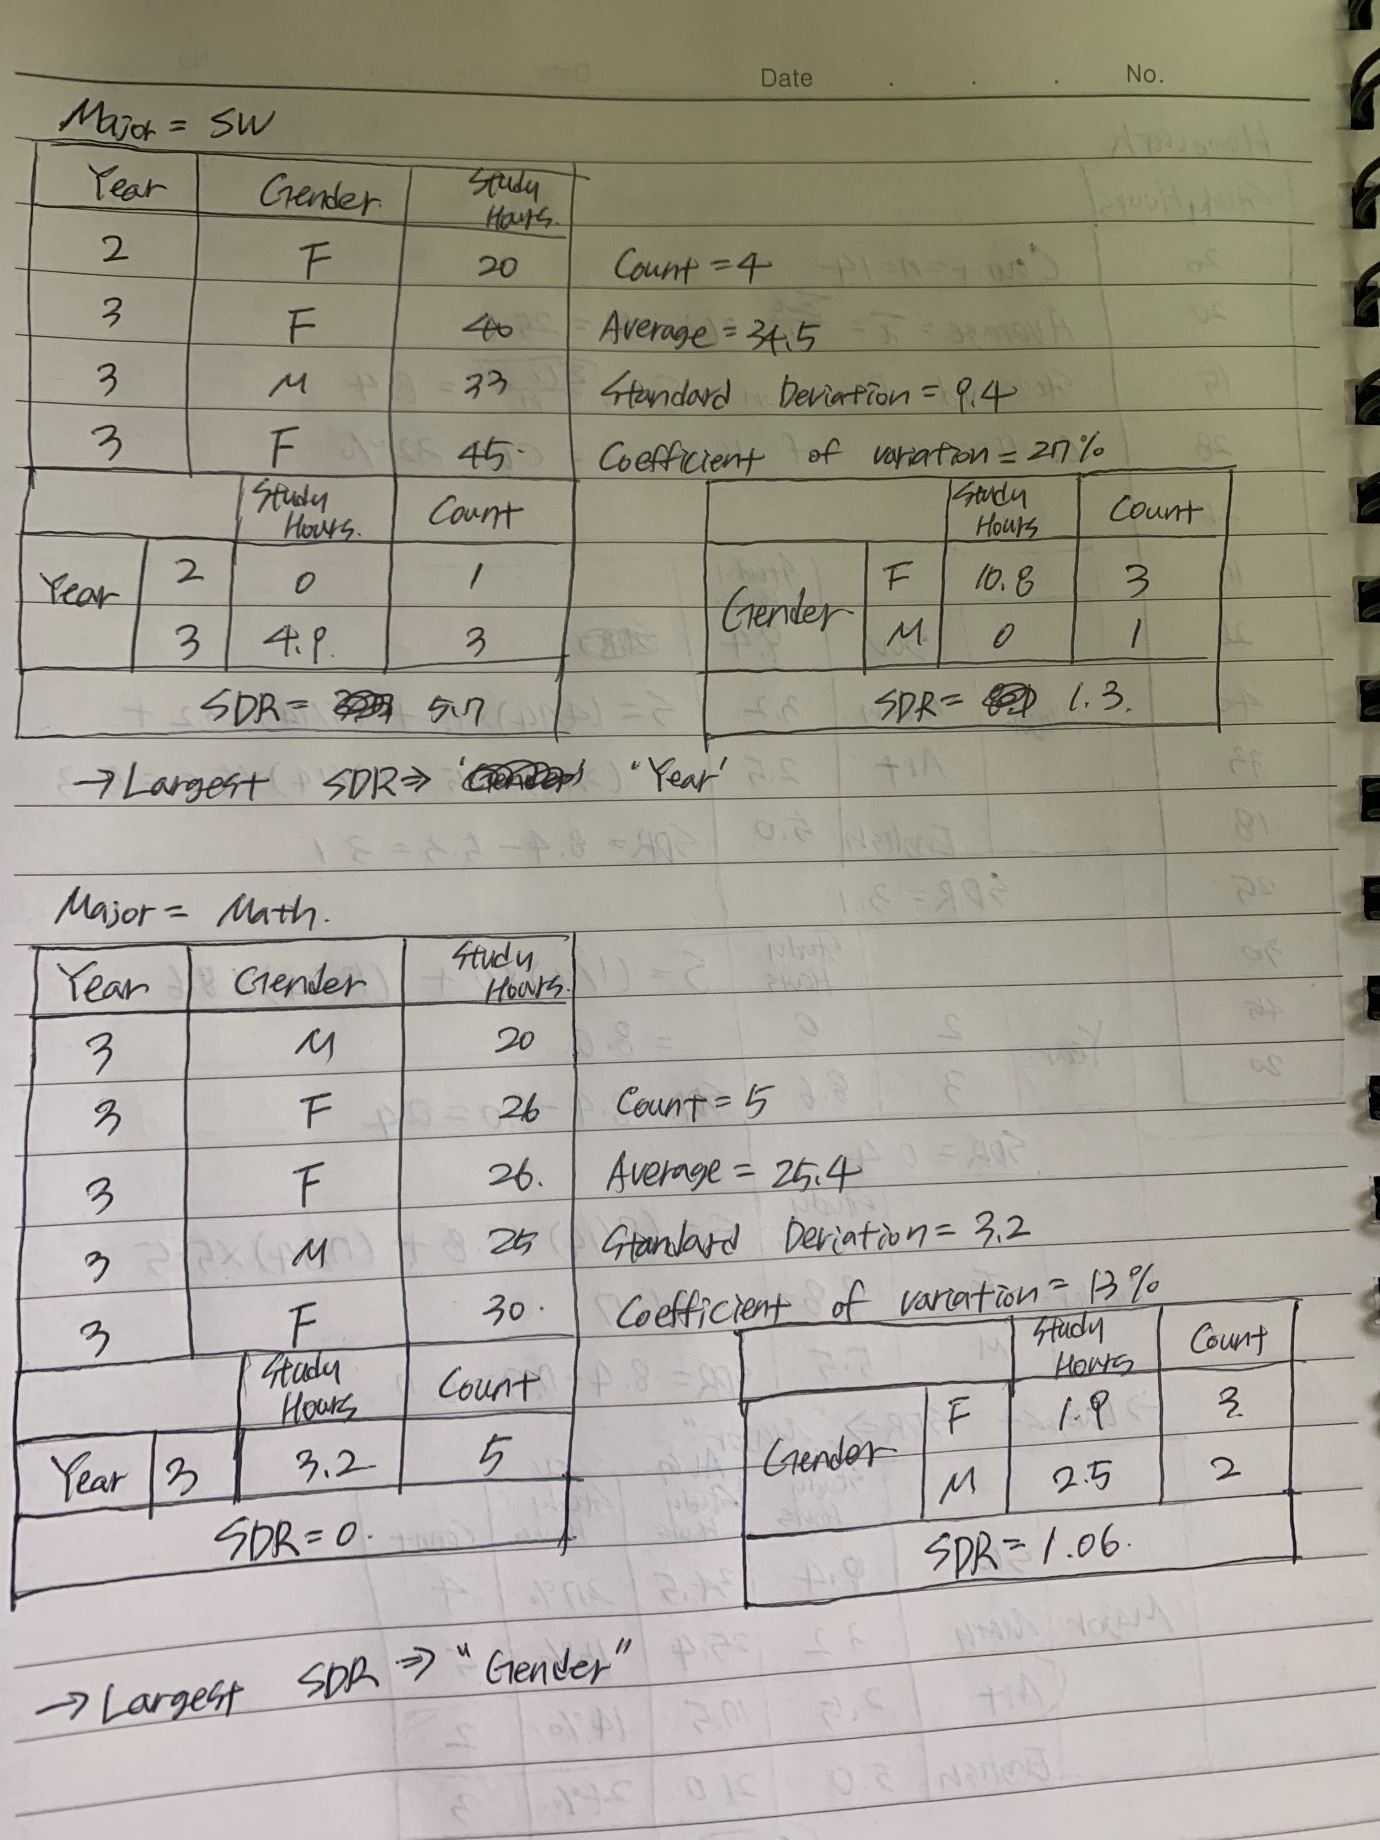 Date . . . No.
Major = SW
Year Gender Study Hours.
2 F 20 Count = 4
3 F 40 Average = 34.5
3 M 33 Standard Deviation = 9.4
3 F 45. Coefficient of variation = 27%
Study Hours. Count
Year 2 0 1
3 4.9. 3
SDR = 5.7
Study Hours Count
Gender F 10.8 3
M 0 1
SDR = 1.3.
→ Largest SDR ⇒ "Year'
Major = Math.
Year Gender Study Hours.
3 M 20
3 F 26 Count = 5
3 F 26. Average = 25.4
3 M 25 Standard Deviation = 3.2
3 F 30. Coefficient of variation = 13%
Study Hours Count
Year 3 3.2 5
SDR = 0.
Study Hours Count
Gender F 1.9 3
M 2.5 2
SDR = 1.06.
→ Largest SDR ⇒ "Gender"